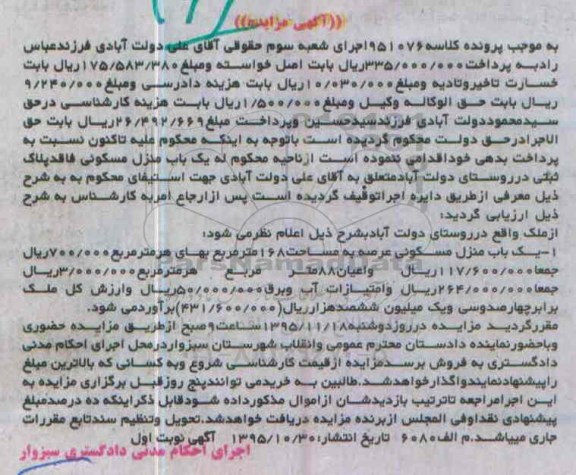 ((آگهی مزایده))
به موجب پرونده کلاسه۹۵۱۰۷۶اجرای شعبه سوم حقوقی آقای علی دولت آبادی فرزندعباس
رادبه پرداخت۳۳۵/۰۰۰/۰۰۰ریال بابت اصل خواسته ومبلغ۱۷۵/۵۸۳/۳۸۰ریال بابت
خسارت تاخیروتادیه ومبلغ۱۰/۰۳۰/۰۰۰ریال بابت هزینه دادرسی ومبلغ۹/۲۴۰/۰۰۰
ریال بابت حق الوکاله وکیل ومبلغ۱/۵۰۰/۰۰۰ریال بابت هزینه کارشناسی درحق
سیدمحموددولت آبادی فرزندسیدحسین وپرداخت مبلغ۲۶/۴۹۲/۶۶۹ریال بابت حق
الاجرادرحق دولت محکوم گردیده است باتوجه به اینکه محکوم علیه تاکنون نسبت به
پرداخت بدهی خوداقدامی ننموده است ازناحیه محکوم له یک باب منزل مسکونی فاقدپلاک
ثبتی درروستای دولت آبادمتعلق به آقای علی دولت آبادی جهت استیفای محکوم به به شرح
ذیل معرفی ازطریق دایره اجراتوقیف گردیده است پس ازارجاع امربه کارشناس به شرح
ذیل ارزیابی گردید:
ازملک واقع درروستای دولت آبادبشرح ذیل اعلام نظرمی شود:
۱-یک باب منزل مسکونی عرصه به مساحت۱۶۸مترمربع بهای هرمترمربع۷۰۰/۰۰۰ریال
جمعا۱۱۷/۶۰۰/۰۰۰ریال واعیان۸۸متر مربع هرمترمربع۳/۰۰۰/۰۰۰ریال
جمعا۲۶۴/۰۰۰/۰۰۰ریال وامتیازات آب وبرق۵۰/۰۰۰/۰۰۰ریال وارزش کل ملک
برابرچهارصدوسی ویک میلیون ششصدهزارریال(۴۳۱/۶۰۰/۰۰۰)برآوردمی شود.
مقررگردید مزایده درروزدوشنبه۱۳۹۵/۱۱/۱۸ساعت۹صبح ازطریق مزایده حضوری
وباحضورنماینده دادستان محترم عمومی وانقلاب شهرستان سبزواردرمحل اجرای احکام مدنی
دادگستری به فروش برسدمزایده ازقیمت کارشناسی شروع وبه کسانی که بالاترین مبلغ
راپیشنهادنمایندواگذارخواهدشد.طالبین به خریدمی توانندپنج روزقبل برگزاری مزایده به
این اجرامراجعه تاترتیب بازدیدشان ازاموال مذکورداده شودقابل ذکراینکه ده درصدمبلغ
پیشنهادی نقداوفی المجلس ازبرنده مزایده دریافت خواهدشد.تحویل وتنظیم سندتابع مقررات
جاری میباشد.م الف۶۰۸۰ تاریخ انتشار:۱۳۹۵/۱۰/۳۰ آگهی نوبت اول
اجرای احکام مدنی دادگستری سبزوار